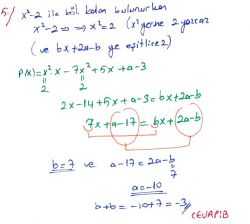 5./ x²-2 ile böl kalan bulunurken
x²-2=0 ⟹ x²=2 (x² yerine 2 yazılır
(ve bx+2a-b ye eşitlice2)
P(x)=x².x-7x²+5x+a-3
2 2
2x-14+5x+a-3=bx+2a-b
7x+a-17=bx+2a-b
b=7 ve a-17=2a-b
7
a=-10
a+b=-10+7=-3//
CEVAP:B